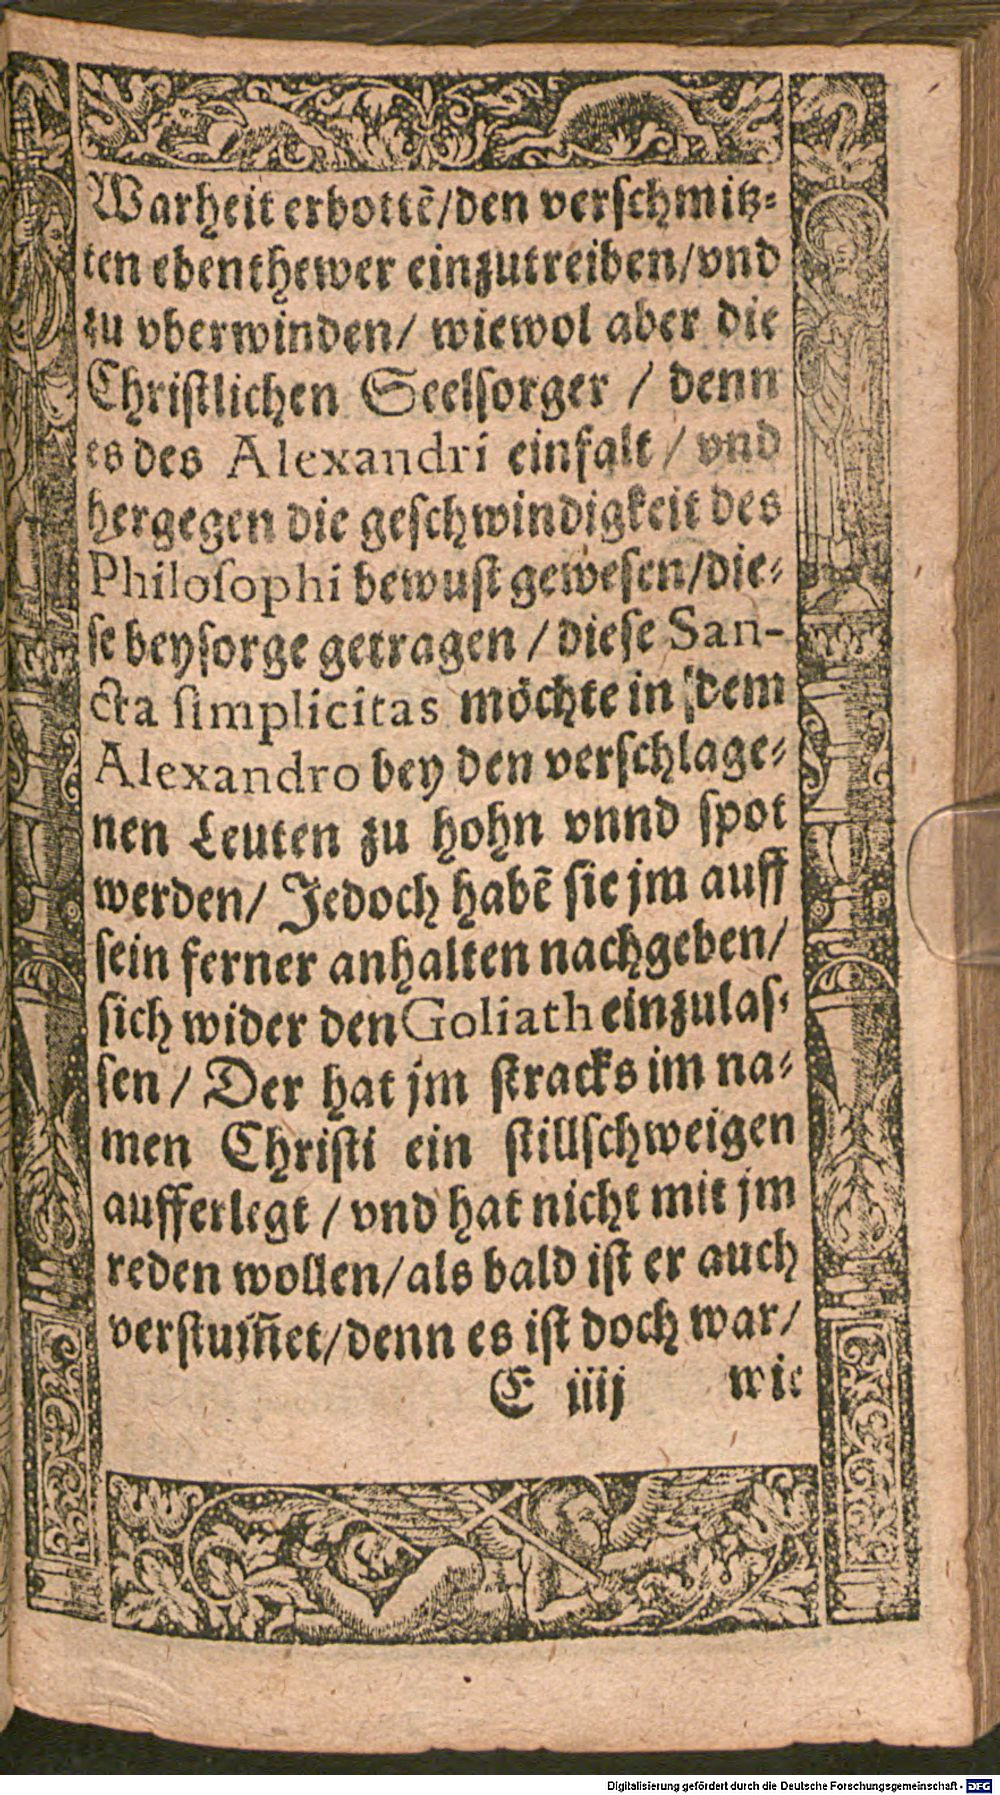 Warheit erbottē/den verschmitz⸗
ten ebenthewer einzutreiben/vnd
zu vberwinden/ wiewol aber die
Christlichen Seelsorger / denn
es des Alexandri einfalt / vnd
hergegen die geschwindigkeit des
Philosophi bewust gewesen/die⸗
se beysorge getragen / diese San-
cta simplicitas möchte in dem
Alexandro bey den verschlage⸗
nen Leuten zu hohn vnnd spot
werden/ Jedoch habē sie jm auff
sein ferner anhalten nachgeben/
sich wider den Goliath einzulas⸗
sen / Der hat jm stracks im na⸗
men Christi ein stillschweigen
aufferlegt / vnd hat nicht mit jm
reden wollen/als bald ist er auch
verstum̃et/denn es ist doch war/
E iiij wie
Digitalisierung gefördert durch die Deutsche Forschungsgemeinschaft - DFG